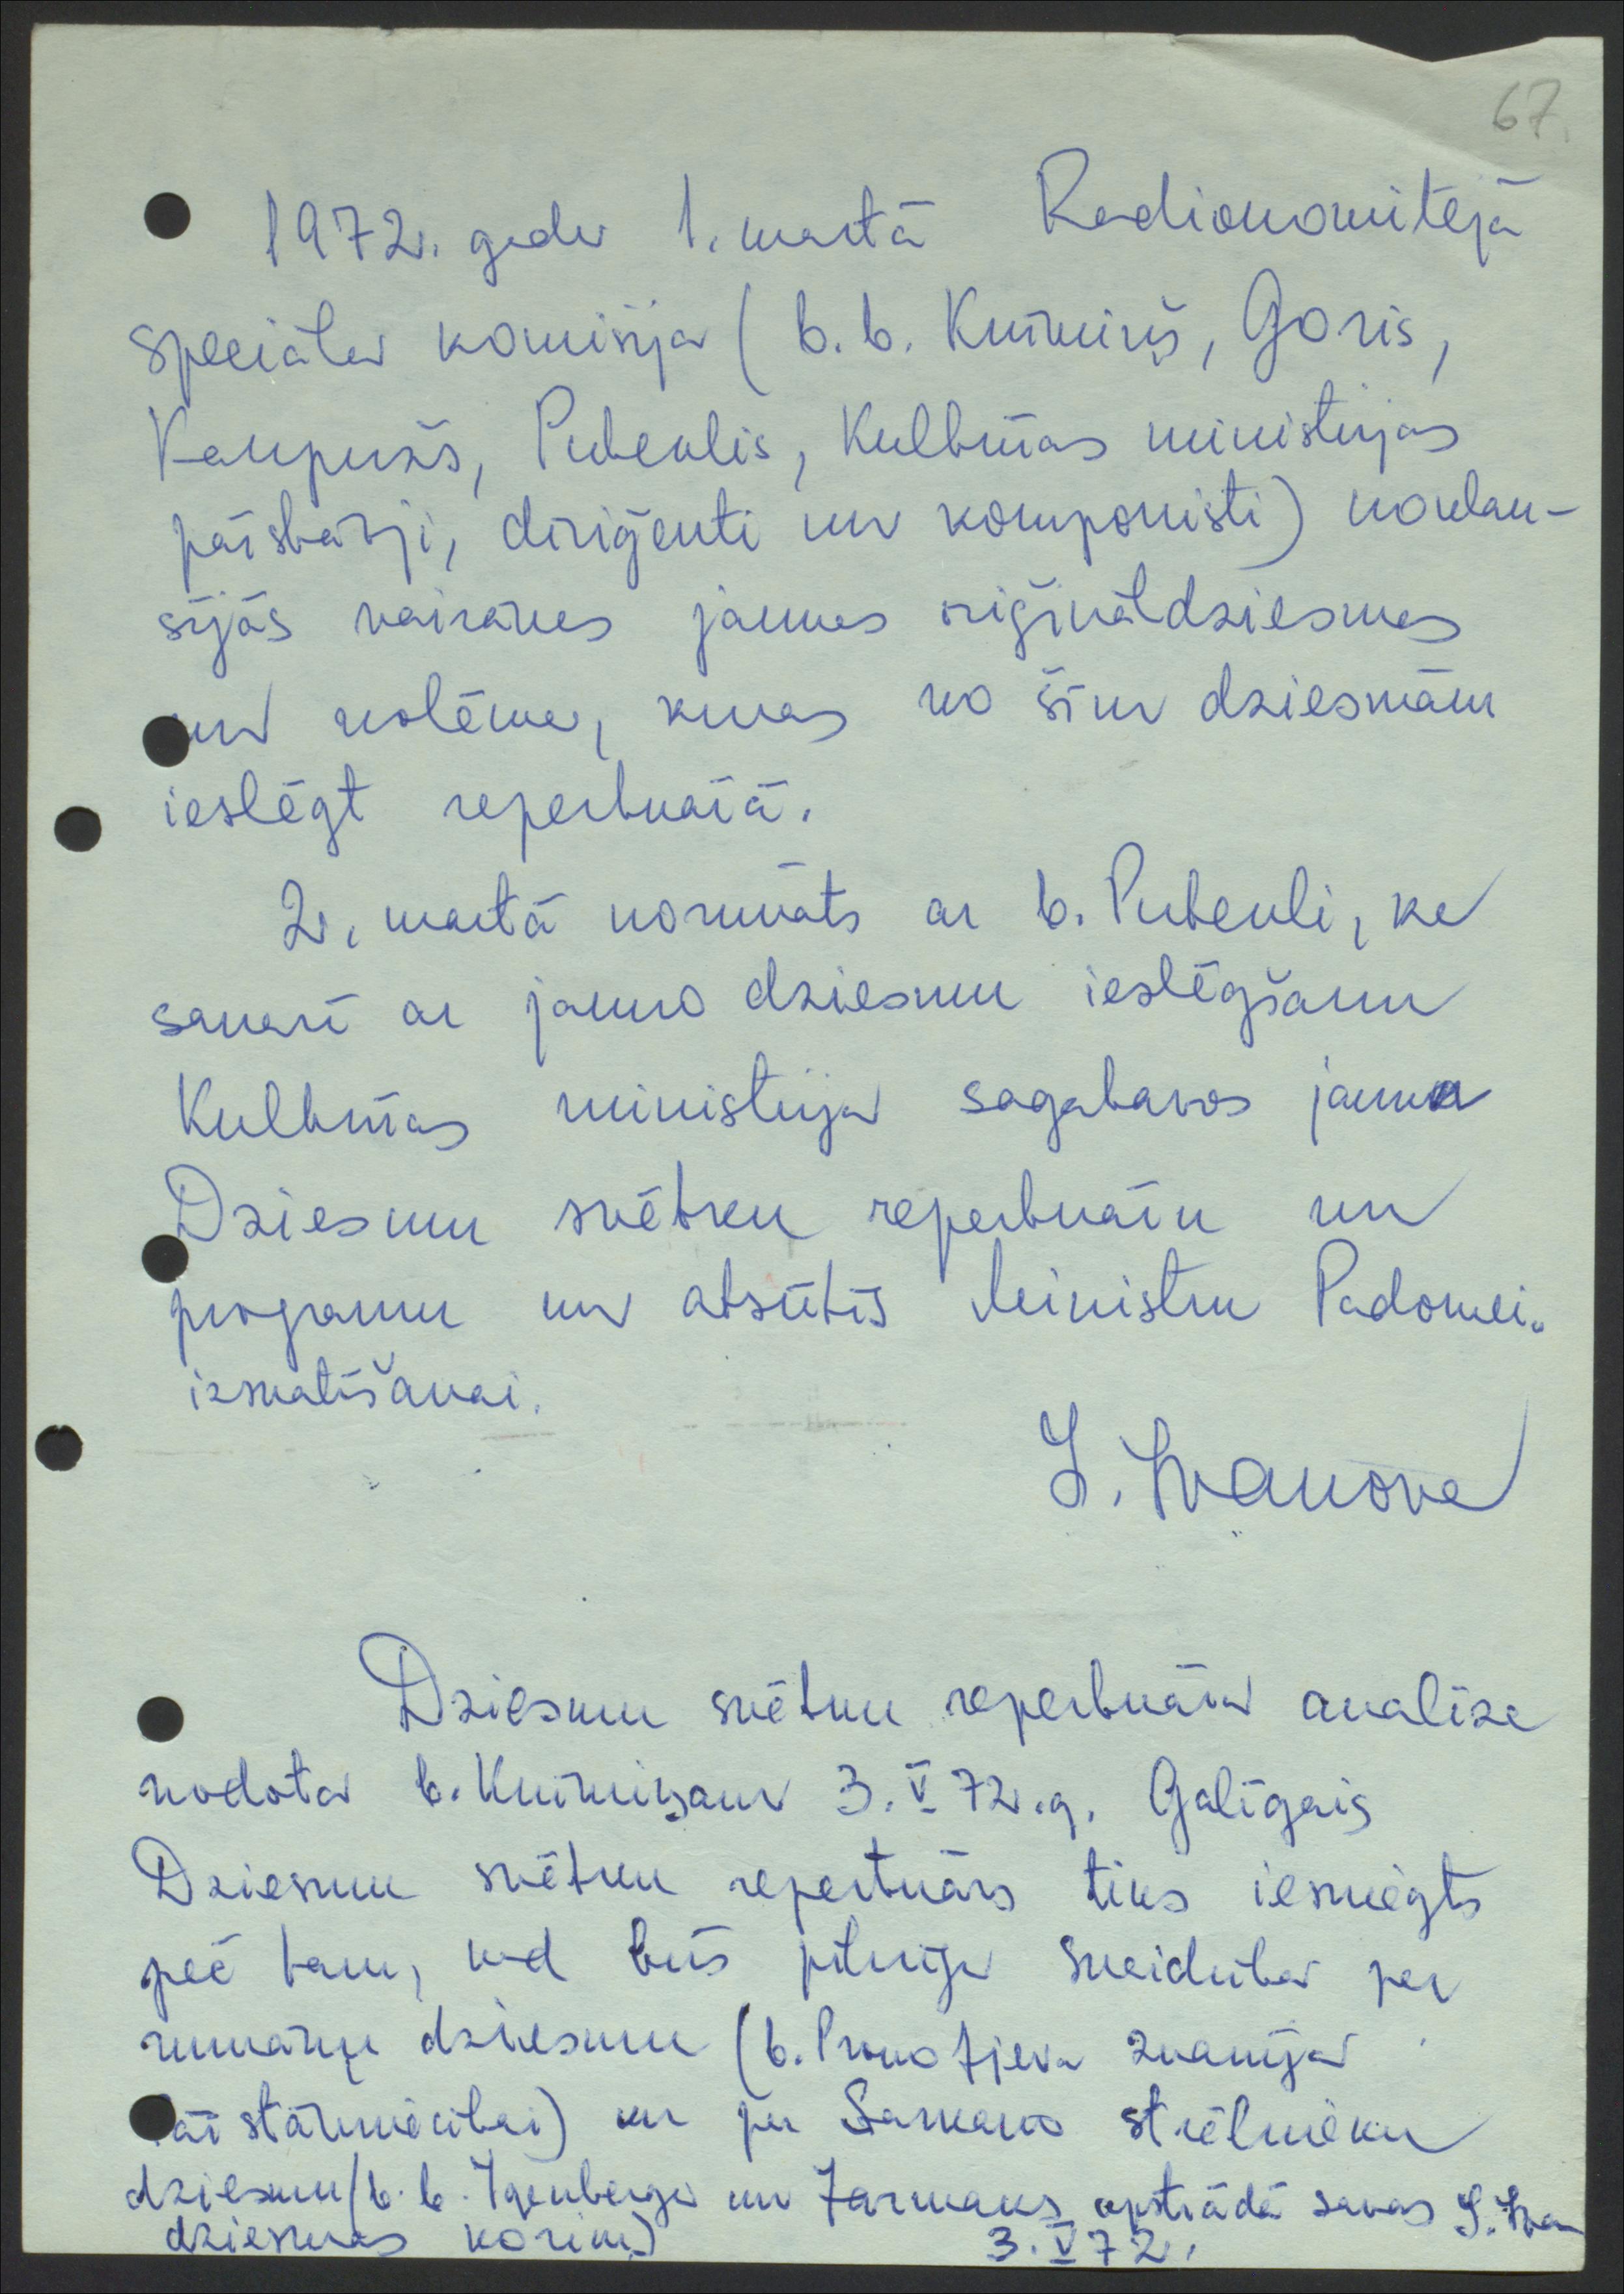 67.
1972. gada 1. martā Radiokomitejā
speciāla komisija (b. b. Kuršiniņš, Goris,
Kaupužs, Pubeulis, Kultūras ministrijas
pārstāvji, diriģenti un komponisti) noklau-
sījās vairākas jaunas oriģināldziesmas
un nolēma, kuras no šīm dziesmām
ieslēgt repertuārā.
2. martā norunāts ar b. Pubeuli, ka
sakarā ar jauno dziesmu ieslēgšanu
Kultūras ministrija sagatavos jauna
Dziesmu svētku repertuāru un
programu un atsūtīs Ministru Padomei
izskatīšanai.
L. Ivanova
Dziesmu svētku repertuāra analīze
nodota b. 3. V 72.g. Galīgais
Dziesmu svētku repertuārs tiks iesniegts
pēc tam, kad būs pilnīga skaidrība par
rumāņu dziesmu (b. Prokofjeva zvanīja
pārstāvniecībai) un par Sarkano strēlnieku
dziesmu (b. b. Īgenberga un Žarmaks apstrādā savas
dziesmas korim)
L. Ivan
3. V 72.